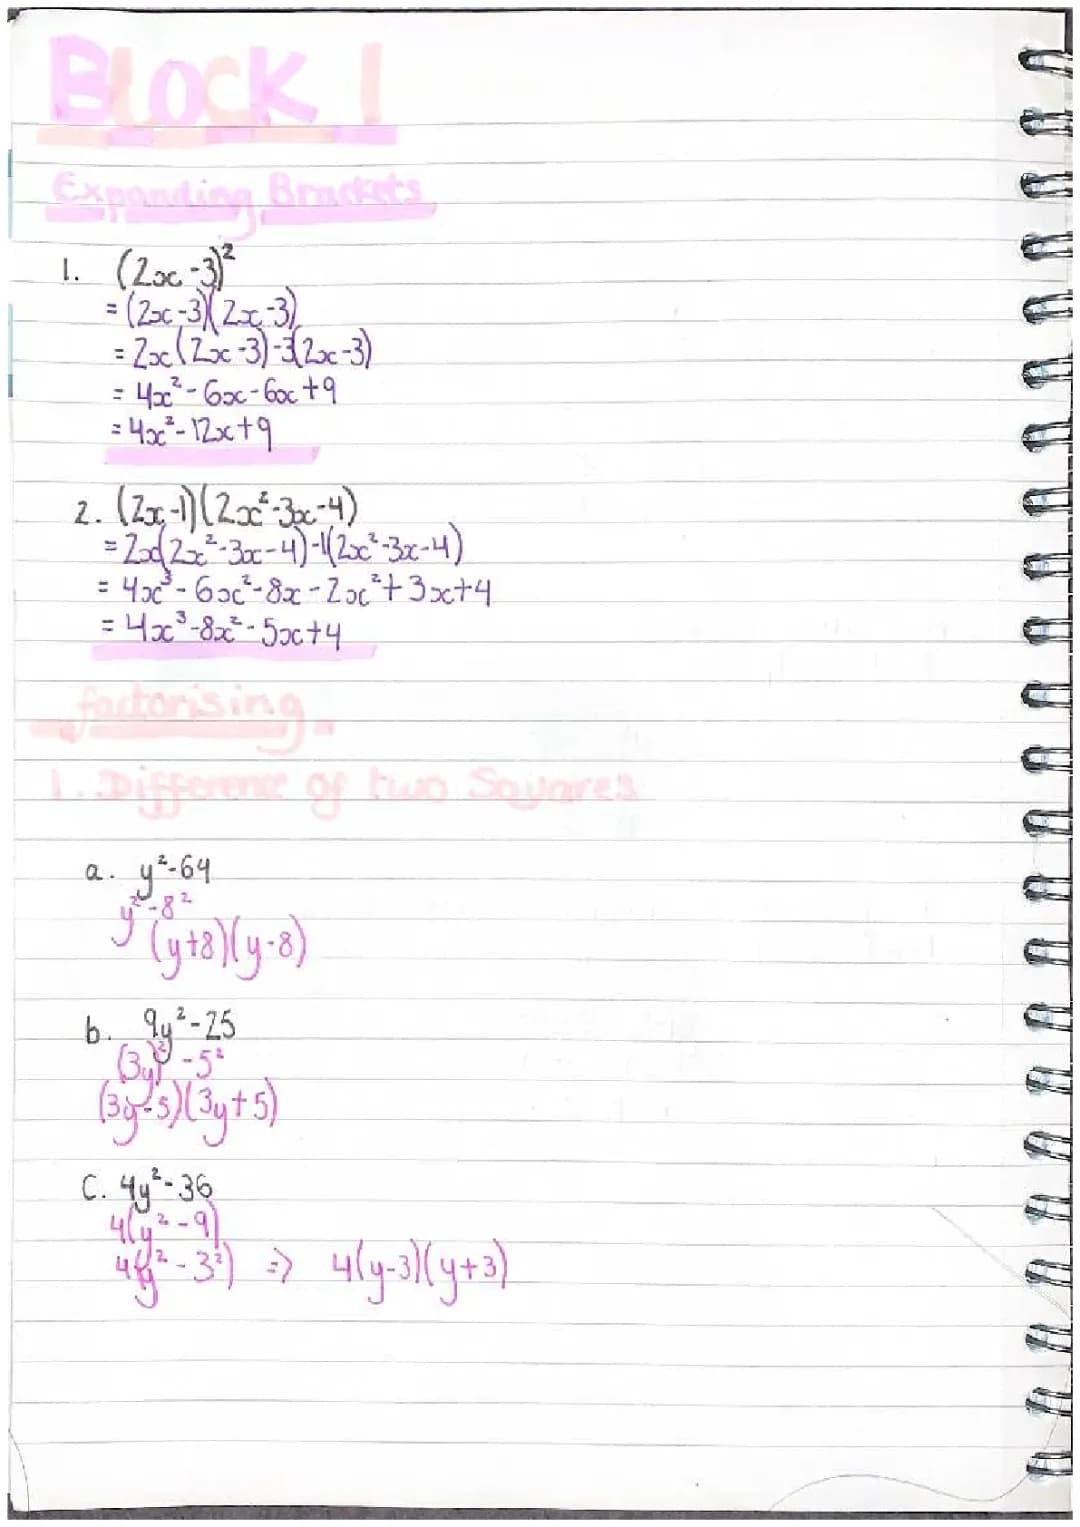 BLOCK 1
Expanding Brackets
1. (2x-3)²
= (2x-3)(2x-3)
= 2x(2x-3)-3(2x-3)
= 4x²-6x-6x+9
= 4x²-12x+9
2. (2x-1)(2x²-3x-4)
= 2x(2x²-3x-4)-1(2x²-3x-4)
= 4x³-6x²-8x-2x²+3x+4
= 4x³-8x²-5x+4
factorising
1. Difference of two Squares
a. y²-64
y²-8²
(y+8)(y-8)
b. 9y²-25
(3y)²-5²
(3y-5)(3y+5)
C. 4y²-36
4(y²-9)
4(y²-3²) => 4(y-3)(y+3)